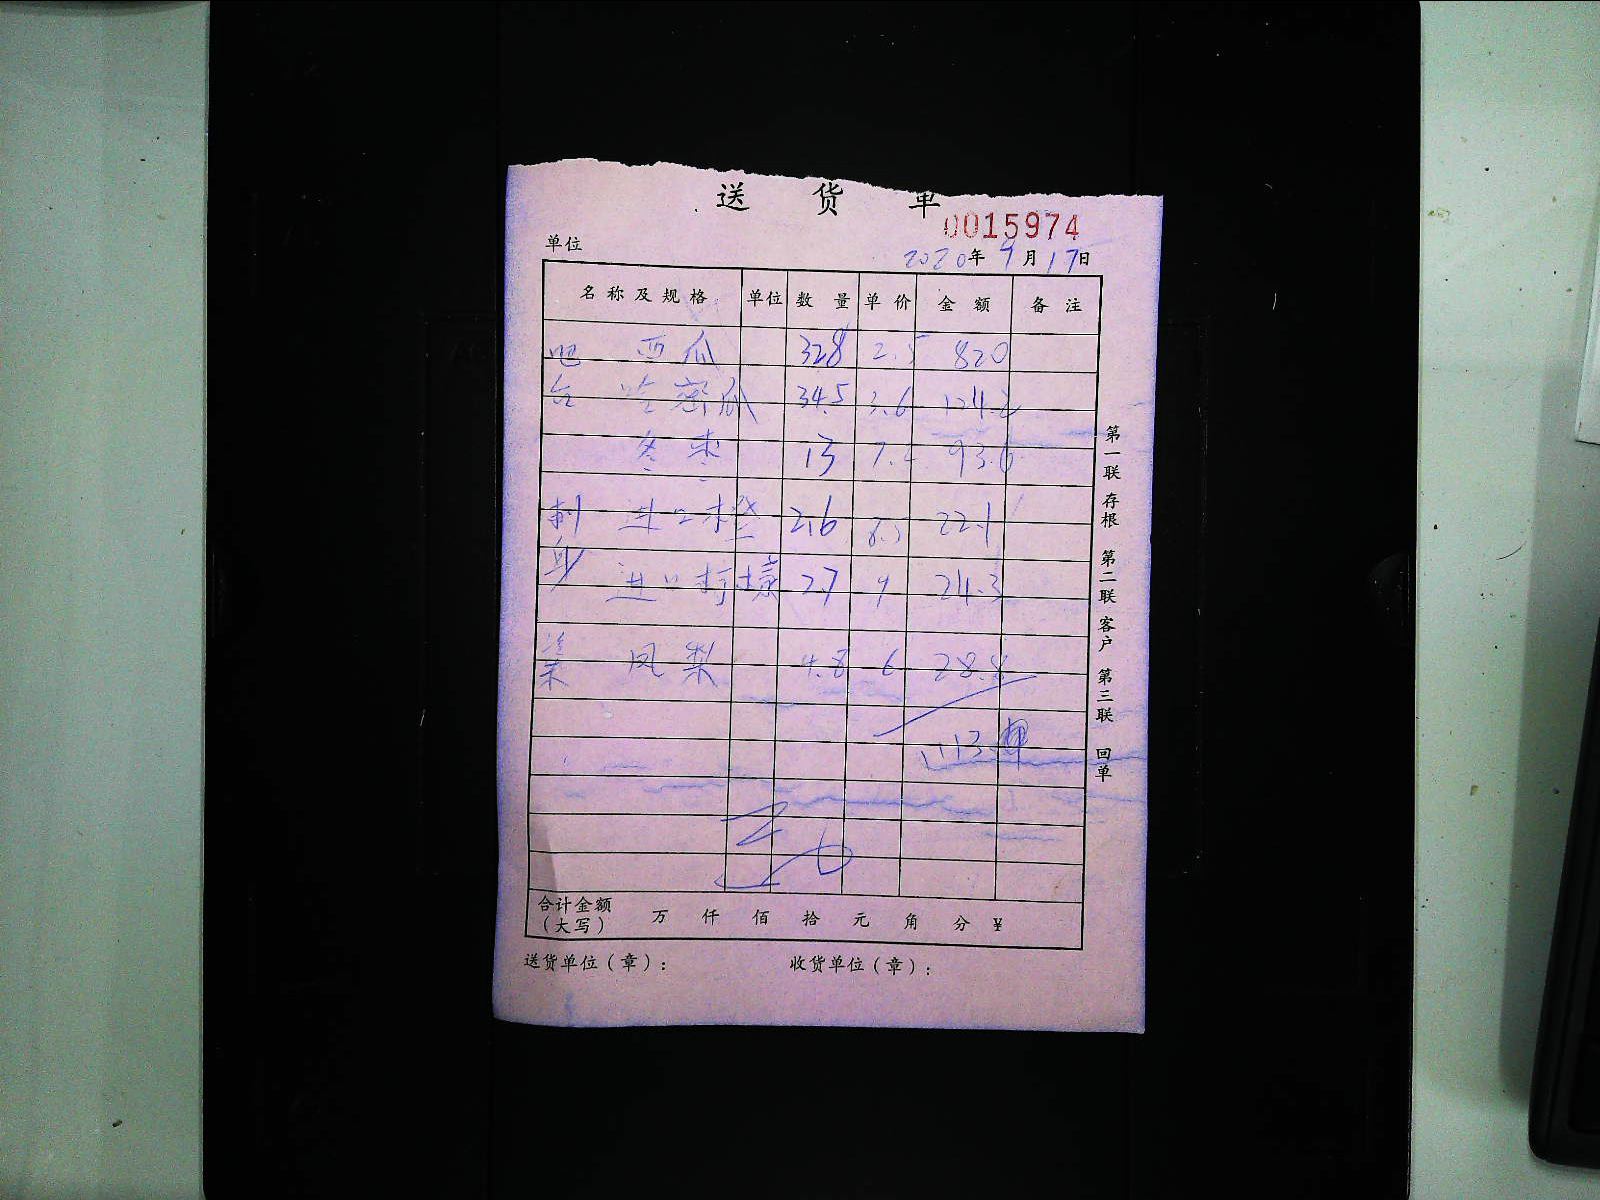 送 货 单
0015974
单位
2020年9月17日
名称及规格 单位 数量 单价 金额 备注
吧 西瓜 328 2.5 820
台 哈密瓜 34.5 3.6 124.2
冬枣 13 7.2 93.6
刺 进口橙 2.6 8.5 22.1
身 进口柠檬 2.7 9 24.3
菜 凤梨 4.8 6 28.8
1113
合计金额(大写) 万 仟 佰 拾 元 角 分 ¥
送货单位(章): 收货单位(章):
第一联 存根 第二联 客户 第三联 回单